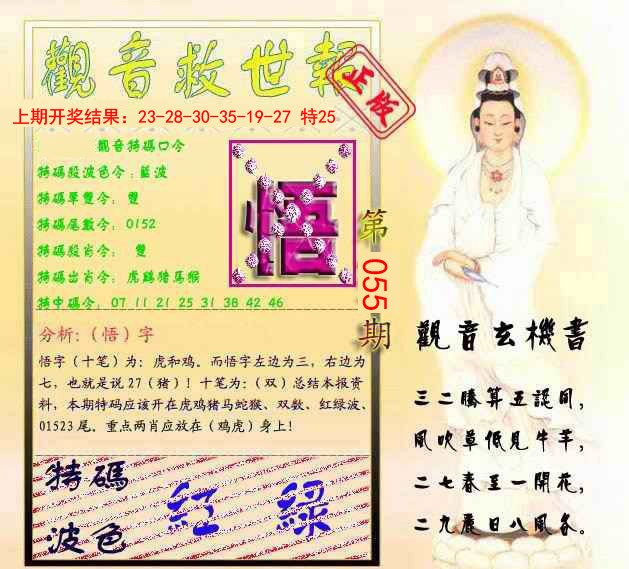 觀音救世報
正版
上期开奖结果：23-28-30-35-19-27 特25
觀音特碼口令
特碼殺波色令：藍波
特碼單雙令： 雙
特碼尾數令： 0152
特碼殺肖令： 雙
特碼出肖令： 虎鷄猪馬猴
特中碼令： 07 11 21 25 31 38 42 46
悟
第055期
分析：（悟）字
悟字（十笔）为：虎和鸡。而悟字左边为三，右边为
七，也就是说27（猪）！十笔为：（双）总结本报资
料，本期特码应该开在虎鸡猪马蛇猴、双数、红绿波、
01523尾。重点两肖应放在（鸡虎）身上！
特碼
波色
紅 綠
觀音玄機書
三二勝算五認同，
風吹草低見牛羊，
二七春至一開花，
二九農日八風各。